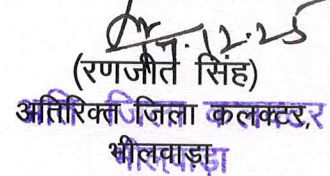 12.25
(रणजीत सिंह)
अतिरिक्त जिला कलक्टर,
भीलवाड़ा